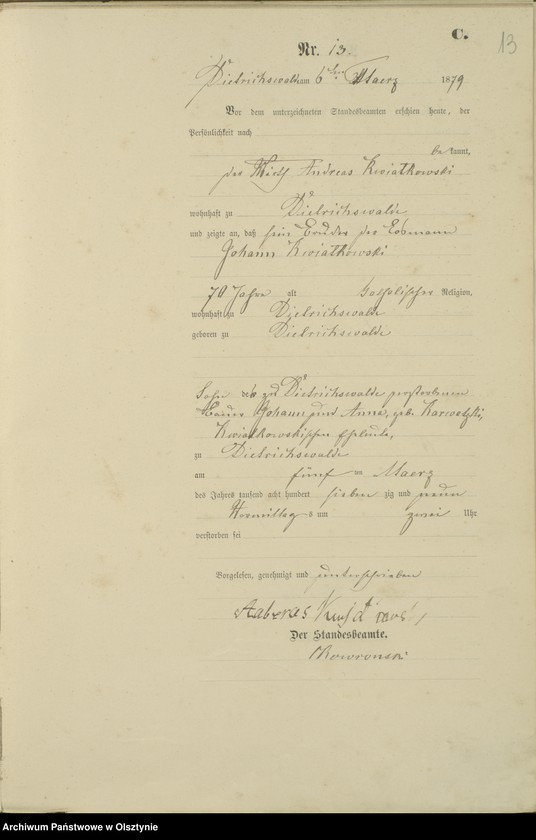 C.
13
Nr. 13.
Dietrichswalde am 6ten Maerz 1879
Vor dem unterzeichneten Standesbeamten erschien heute, der
Persönlichkeit nach
be kannt,
der Andreas Kwiatkowski
wohnhaft zu Dietrichswalde
und zeigte an, daß sein Bruder der
Johann Kwiatkowski
70 Jahre alt katholischer Religion,
wohnhaft zu Dietrichswalde
geboren zu Dietrichswalde
Sohn der zu Dietrichswalde verstorbenen
Bauer Johann und Anna, geb.
Kwiatkowskischen Eheleute,
zu Dietrichswalde
am fünf ten Maerz
des Jahres tausend acht hundert sieben zig und neun
Vormittag s um zwei Uhr
verstorben sei
Vorgelesen, genehmigt und unterschrieben
Der Standesbeamte.
Skowronski
Archiwum Państwowe w Olsztynie